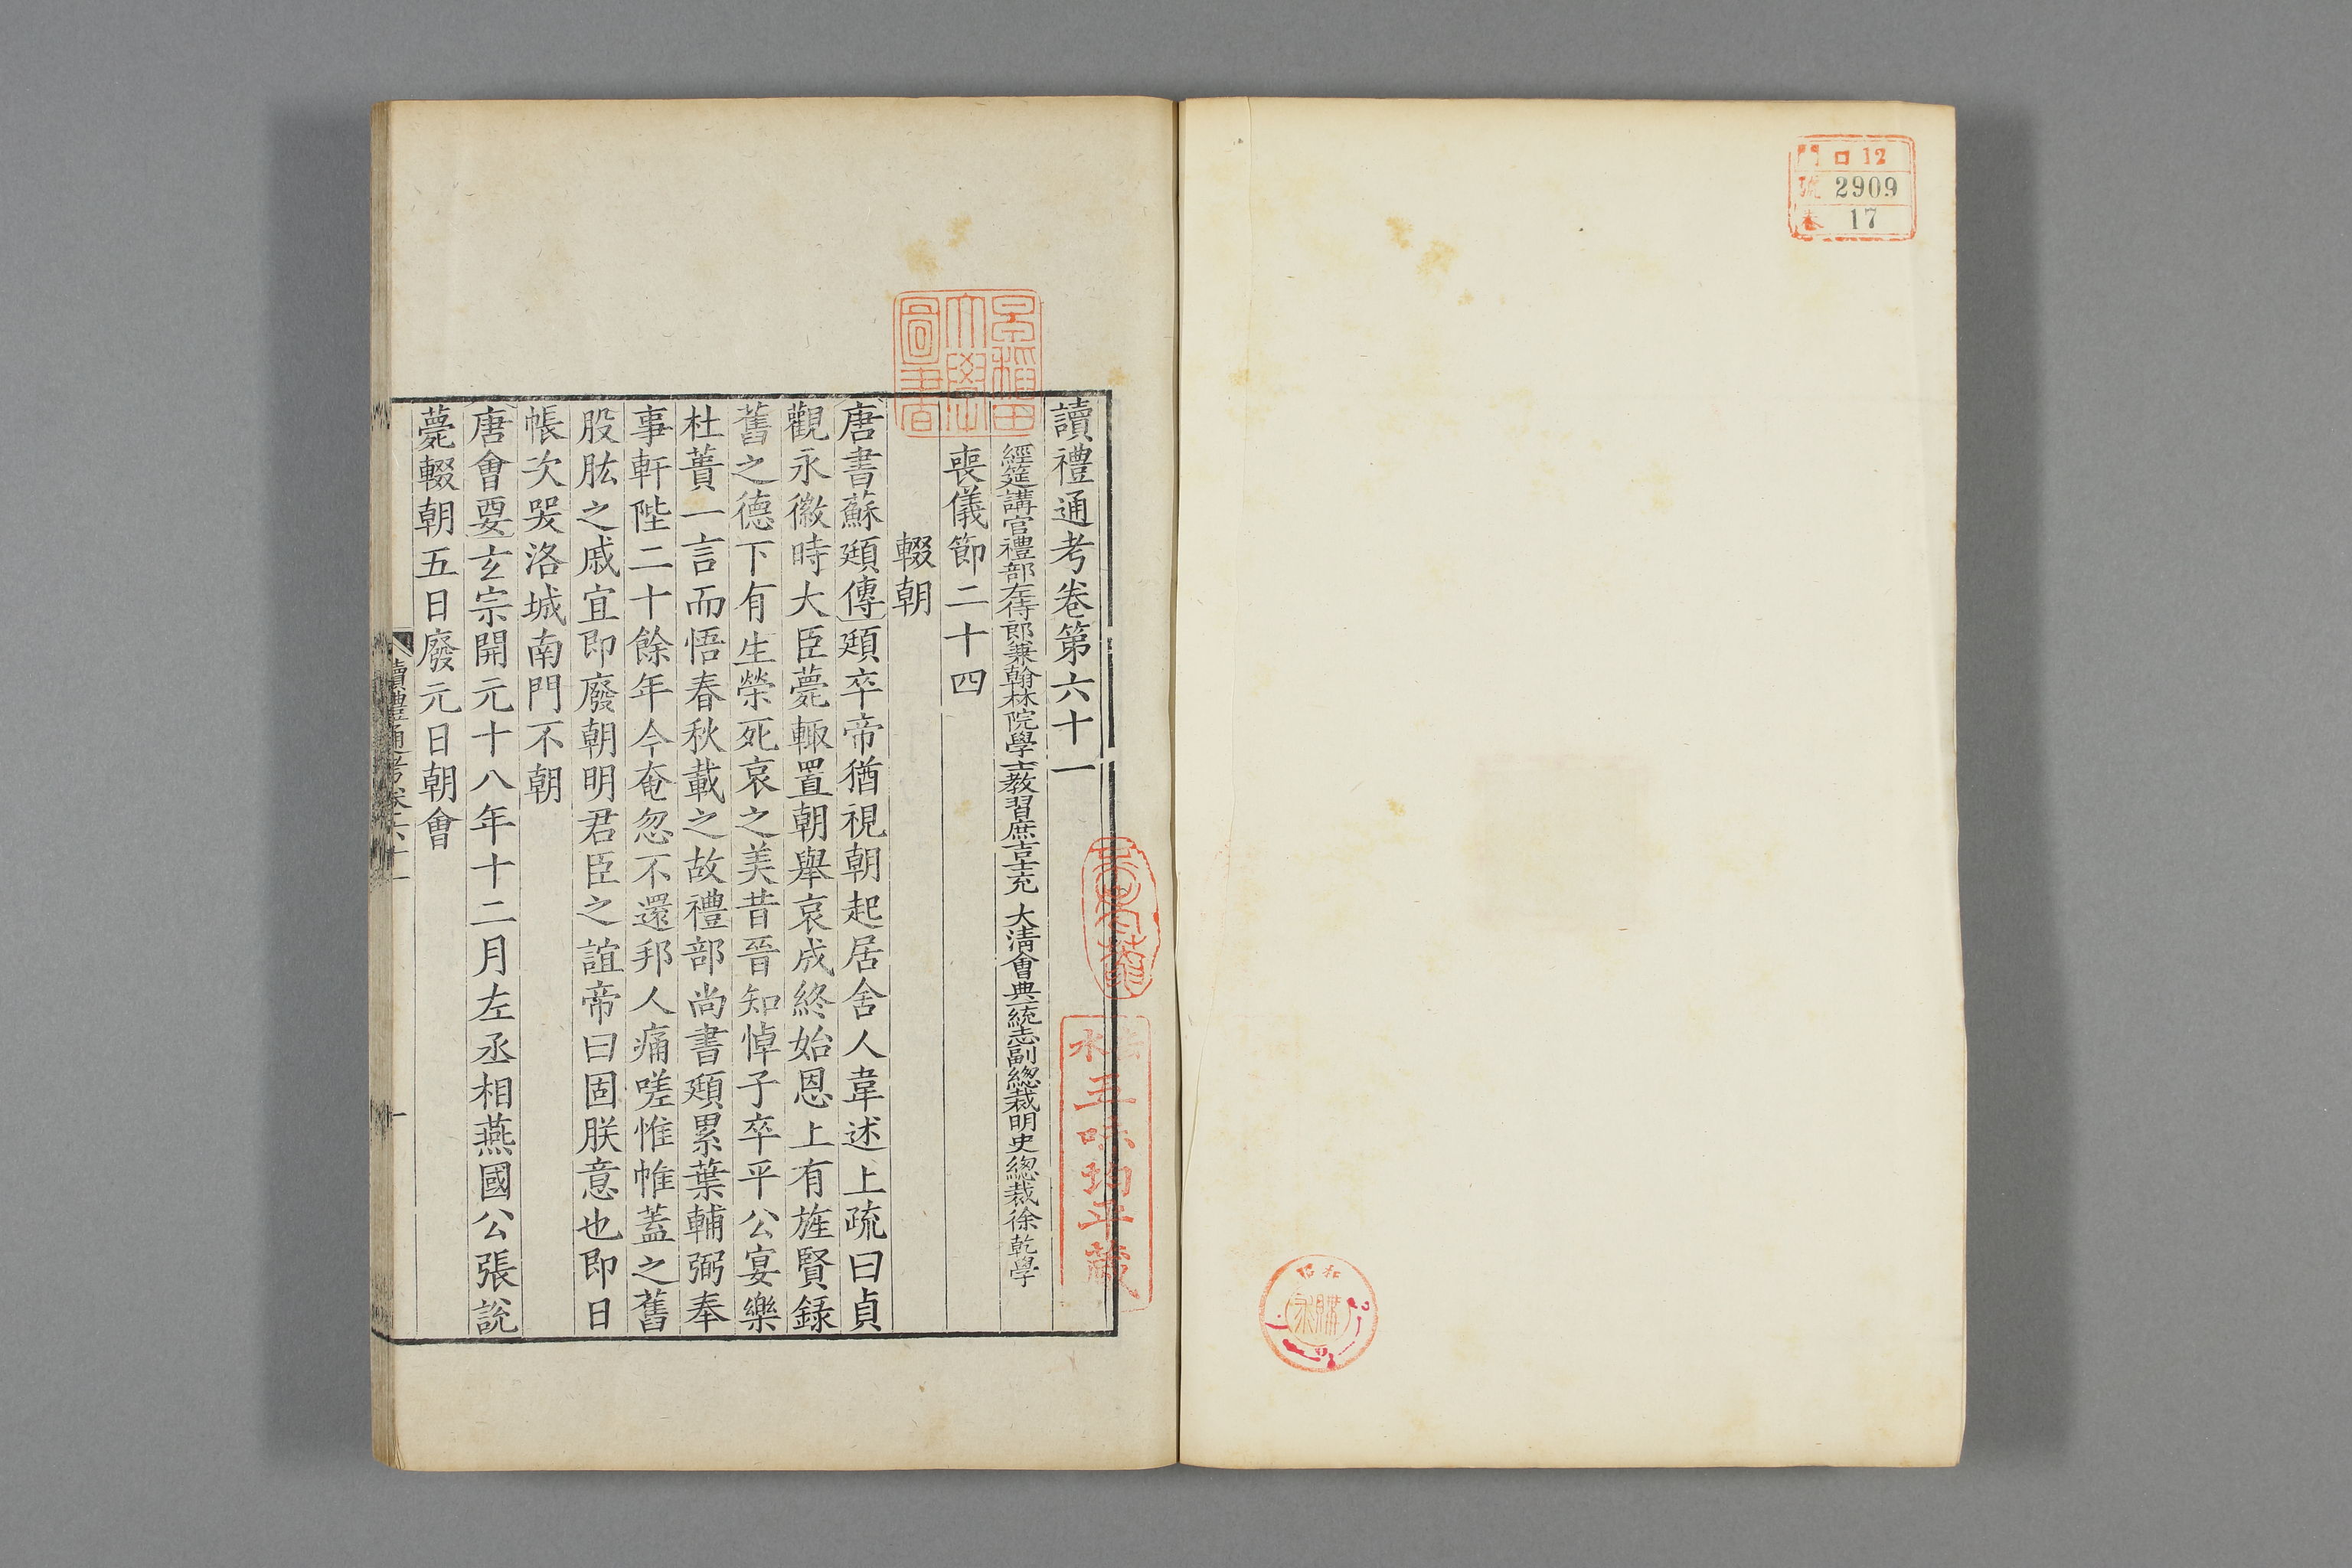 門 ロ12
號 2909
卷 17
早稻田
大學
圖書
讀禮通考卷第六十一
經筵講官禮部左侍郎兼翰林院學士教習庶吉士充 大清會典一統志副總裁明史總裁徐乾學
喪儀節二十四
輟朝
唐書蘇頲傳頲卒帝猶視朝起居舍人韋述上疏曰貞
觀永徽時大臣薨輙置朝舉哀成終始恩上有旌賢録
舊之德下有生榮死哀之美昔晉知悼子卒平公宴樂
杜蕢一言而悟春秋載之故禮部尚書頲累葉輔弼奉
事軒陛二十餘年今奄忽不還邦人痛嗟惟帷蓋之舊
股肱之戚宜即廢朝明君臣之誼帝曰固朕意也即日
帳次哭洛城南門不朝
唐會要玄宗開元十八年十二月左丞相燕國公張說
薨輟朝五日廢元日朝會
讀禮通考卷六十一
一